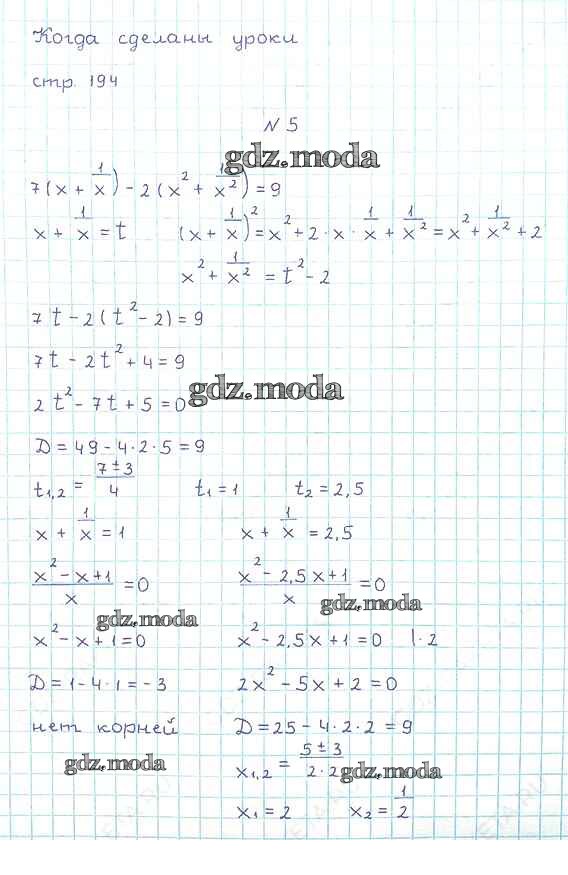 Когда сделаны уроки
стр. 194
N 5
gdz.moda
7(x + 1/x) - 2(x² + 1/x²) = 9
x + 1/x = t    (x + 1/x)² = x² + 2 · x · 1/x + 1/x² = x² + 1/x² + 2
x² + 1/x² = t² - 2
7t - 2(t² - 2) = 9
7t - 2t² + 4 = 9
2t² - 7t + 5 = 0
gdz.moda
D = 49 - 4 · 2 · 5 = 9
t₁,₂ = (7 ± 3)/4    t₁ = 1    t₂ = 2,5
x + 1/x = 1    x + 1/x = 2,5
(x² - x + 1)/x = 0    (x² - 2,5x + 1)/x = 0
gdz.moda    gdz.moda
x² - x + 1 = 0    x² - 2,5x + 1 = 0   | · 2
D = 1 - 4 · 1 = -3    2x² - 5x + 2 = 0
нет корней    D = 25 - 4 · 2 · 2 = 9
gdz.moda    x₁,₂ = (5 ± 3)/(2 · 2)    gdz.moda
x₁ = 2    x₂ = 1/2